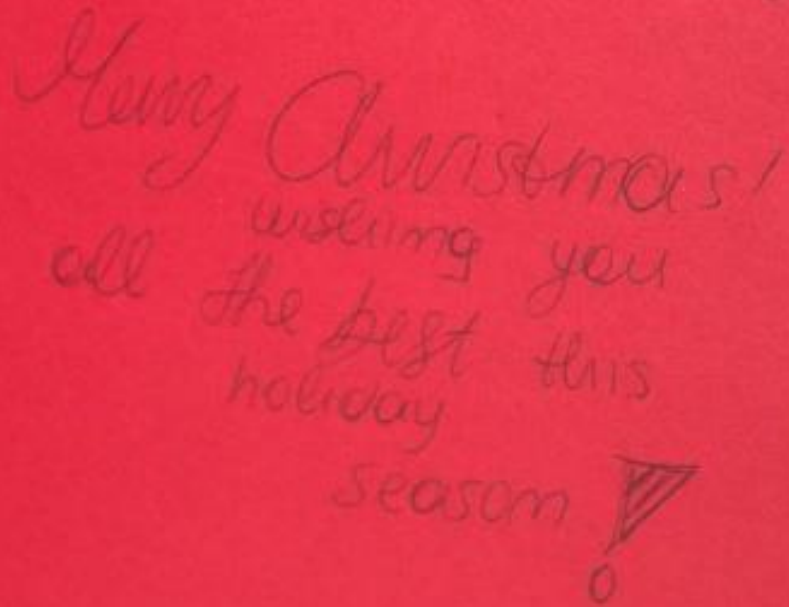 Merry Christmas!
wishing you
all the best this
holiday
season!